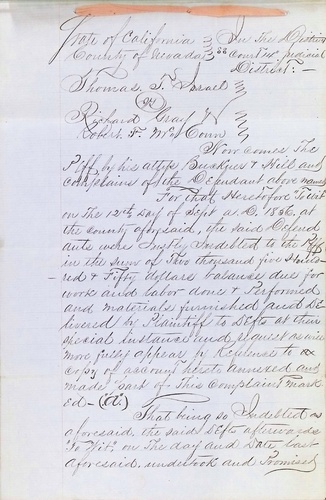 State of California } In The District
County of Nevada } ss Court 14th Judicial
District:—
Thomas T. Israel
vs
Richard Gray &
Robert F. McCown
Now comes the
Plff by his attys Buckner & Hill and
complains of the Defendant above named
For that Heretofore To wit
on The 12th day of Sept A.D. 1856, at
the county aforesaid, the said Defend
ants were Justly Indebted to the Plff
in the sum of Two thousand five Hund
-red & Fifty dollars balance due for
work and labor done & Performed
and materials furnished and De
livered by Plaintiff to Defts at their
special instance and request as will
more fully appear by Reference to a
Copy of account hereto annexed and
made part of This Complaint mark
ed —
That being so Indebted as
aforesaid, the said Defts afterwards
To Wit, on The day and Date last
aforesaid, undertook and Promised